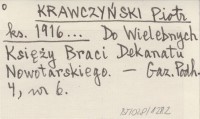 KRAWCZYŃSKI Piotr
ks. 1916... Do Wielebnych
Księży Braci Dekanatu
Nowotarskiego. — Gaz. Podh.
4, nr 6.